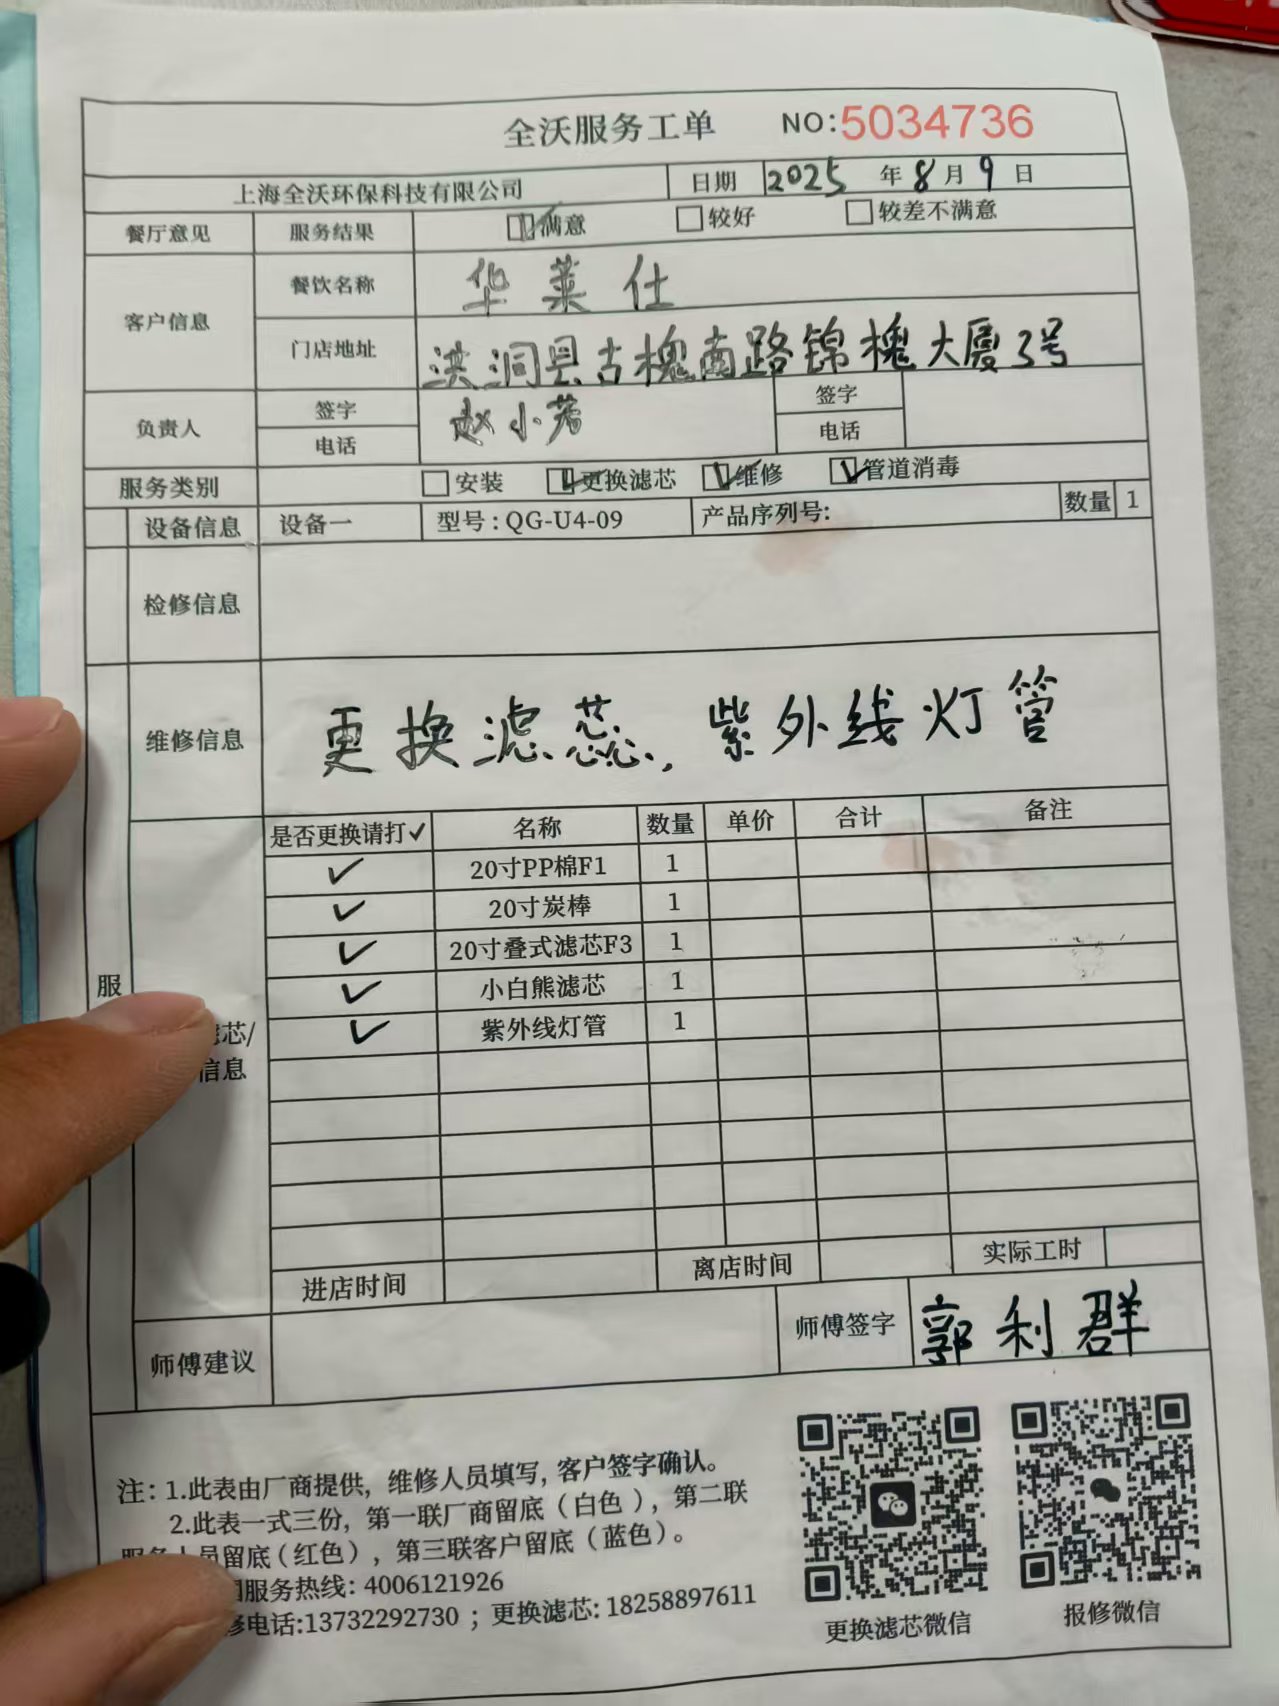 全沃服务工单 NO:5034736
上海全沃环保科技有限公司 日期 2025 年 8 月 9 日
餐厅意见 服务结果 满意 较好 较差不满意
客户信息 餐饮名称 华莱仕
门店地址 洪洞县古槐南路锦槐大厦3号
负责人 签字 赵小 签字
电话 电话
服务类别 安装 更换滤芯 维修 管道消毒
设备信息 设备一 型号：QG-U4-09 产品序列号: 数量 1
检修信息
维修信息 更换滤芯, 紫外线灯管
是否更换请打✓ 名称 数量 单价 合计 备注
✓ 20寸PP棉F1 1
✓ 20寸炭棒 1
✓ 20寸叠式滤芯F3 1
✓ 小白熊滤芯 1
✓ 紫外线灯管 1
服
芯/
信息
进店时间 离店时间 实际工时
师傅建议 师傅签字 郭利群
注：1.此表由厂商提供，维修人员填写，客户签字确认。
2.此表一式三份，第一联厂商留底（白色），第二联
服务人员留底（红色），第三联客户留底（蓝色）。
服务热线：4006121926
修电话:13732292730 ；更换滤芯: 18258897611
更换滤芯微信 报修微信